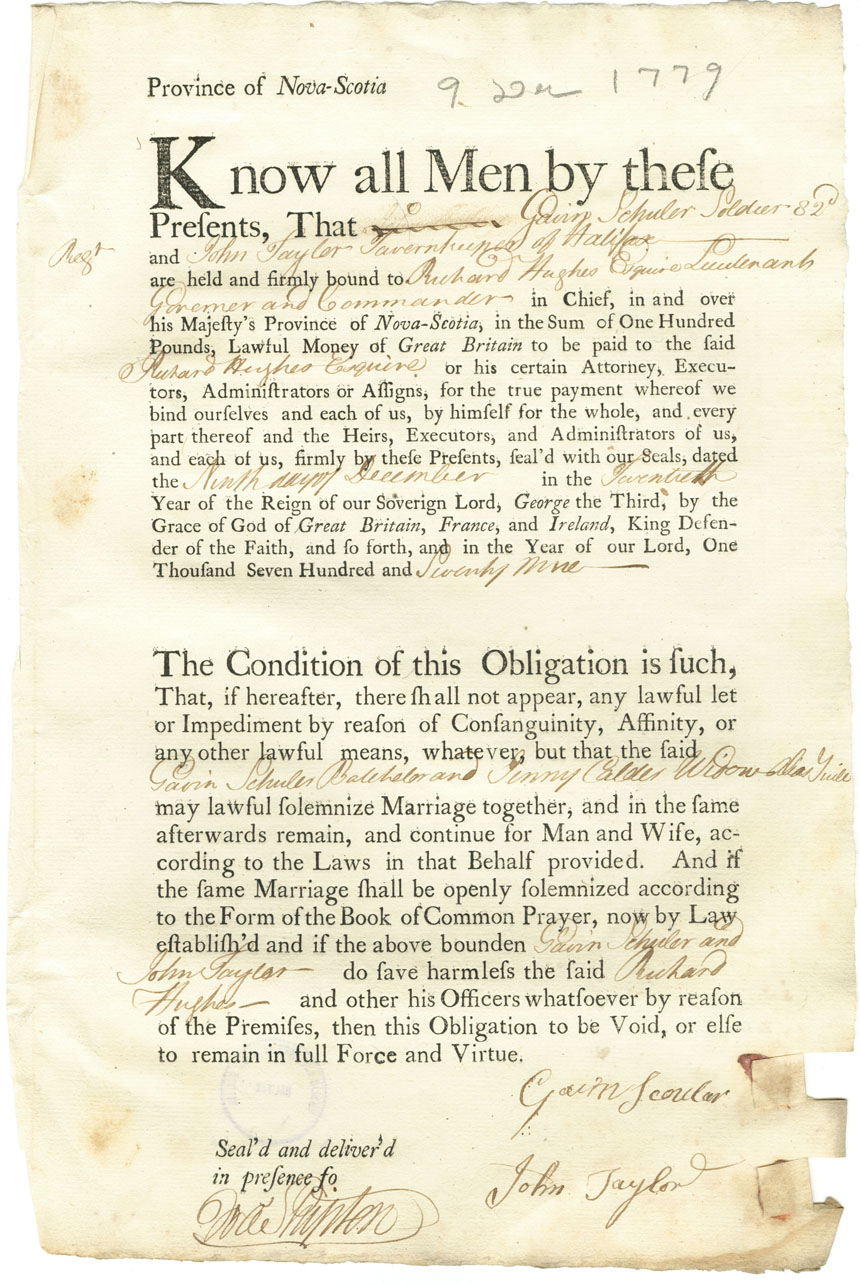 Province of Nova-Scotia 9 Der 1779
Know all Men by theſe
Preſents, That Gavin Schuler Soldier 82d
Regt
and John Taylor Tavernkeeper of Halifax
are held and firmly bound to Richard Hughes Esquire Lieutenant
Governer and Commander in Chief, in and over
his Majeſty's Province of Nova-Scotia, in the Sum of One Hundred
Pounds, Lawful Money of Great Britain to be paid to the ſaid
Richard Hughes Esquire or his certain Attorney, Execu-
tors, Adminiſtrators or Aſſigns, for the true payment whereof we
bind ourſelves and each of us, by himſelf for the whole, and every
part thereof and the Heirs, Executors, and Adminiſtrators of us,
and each of us, firmly by theſe Preſents, ſeal'd with our Seals, dated
the Ninth day of December in the Twentieth
Year of the Reign of our Soverign Lord, George the Third, by the
Grace of God of Great Britain, France, and Ireland, King Defen-
der of the Faith, and ſo forth, and in the Year of our Lord, One
Thouſand Seven Hundred and Seventy Nine
The Condition of this Obligation is ſuch,
That, if hereafter, there ſhall not appear, any lawful let
or Impediment by reaſon of Conſanguinity, Affinity, or
any other lawful means, whatever, but that the ſaid
Gavin Schuler Batchelor and Jenny Calder Widow alias
may lawful ſolemnize Marriage together, and in the ſame
afterwards remain, and continue for Man and Wife, ac-
cording to the Laws in that Behalf provided. And if
the ſame Marriage ſhall be openly ſolemnized according
to the Form of the Book of Common Prayer, now by Law
eſtabliſh'd and if the above bounden Gavin Schuler and
John Taylor do ſave harmleſs the ſaid Richard
Hughes and other his Officers whatſoever by reaſon
of the Premiſes, then this Obligation to be Void, or elſe
to remain in full Force and Virtue.
Gavin Scoular
Seal'd and deliver'd
in preſenee fo
John Taylor
Shipton